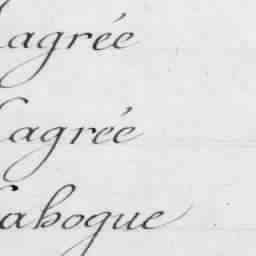 agrée
agrée
ahogue